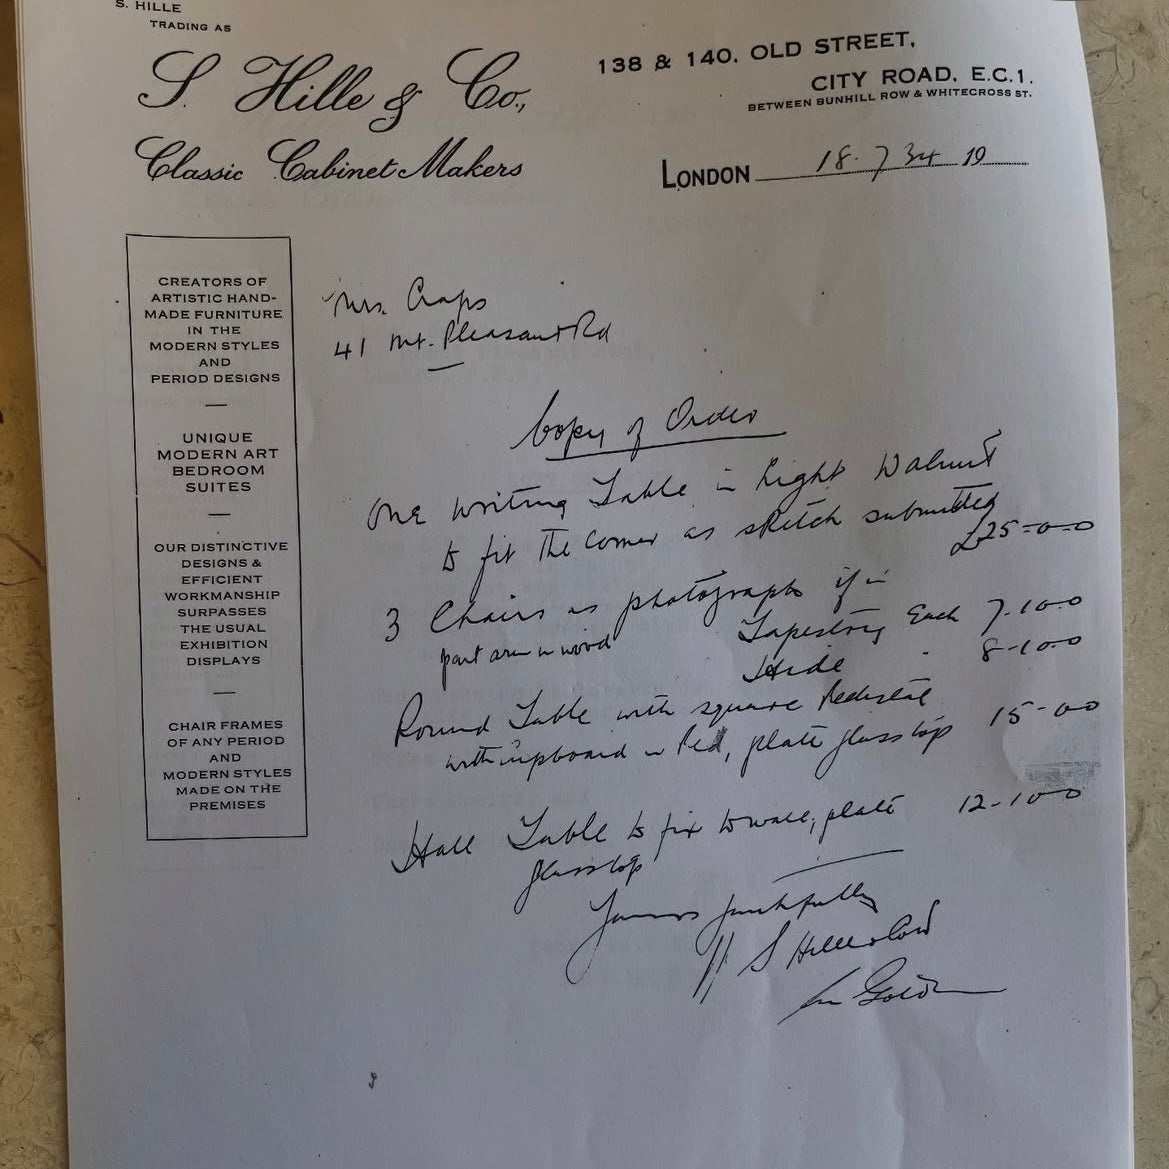 S. HILLE
TRADING AS
S. Hille & Co.,
Classic Cabinet Makers
138 & 140, OLD STREET,
CITY ROAD, E.C.1.
BETWEEN BUNHILL ROW & WHITECROSS ST.
LONDON 18.7 34 19
CREATORS OF
ARTISTIC HAND-
MADE FURNITURE
IN THE
MODERN STYLES
AND
PERIOD DESIGNS
UNIQUE
MODERN ART
BEDROOM
SUITES
OUR DISTINCTIVE
DESIGNS &
EFFICIENT
WORKMANSHIP
SURPASSES
THE USUAL
EXHIBITION
DISPLAYS
CHAIR FRAMES
OF ANY PERIOD
AND
MODERN STYLES
MADE ON THE
PREMISES
Mrs. Craps
41 Mt. Pleasant Rd
Copy of Order
One Writing Table in Light Walnut
to fit the corner as sketch submitted
£25-0-0
3 Chairs as photographs if in
part arm in wood Tapestry Each 7-10-0
Hide " 8-10-0
Round Table with square Pedestal
with cupboard in Ped, plate glass top 15-0-0
Hall Table to fix to wall, plate 12-10-0
glass top
Yours faithfully
S Hille & Co